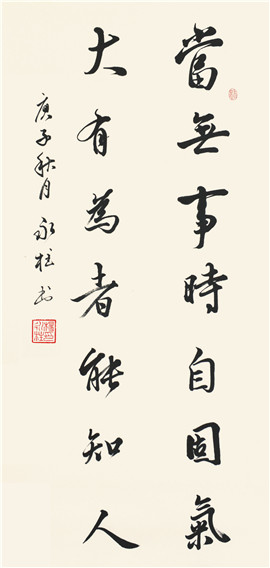 當無事時自固氣
大有為者能知人
庚子秋月永柱書